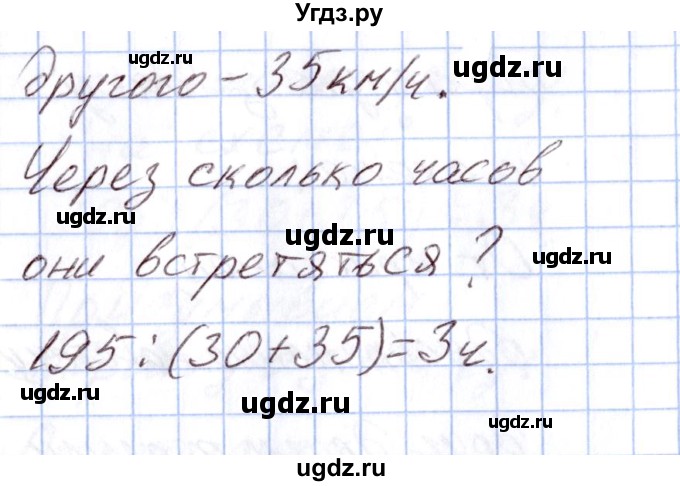 Угдз.ру
другого - 35км/ч.
ugdz.ru
ugdz.ru
Через сколько часов
ugdz.ru
ugdz.ru
ugdz.ru
они встретяться?
195:(30+35)=3ч.
ugdz.ru
ugdz.ru
ugdz.ru